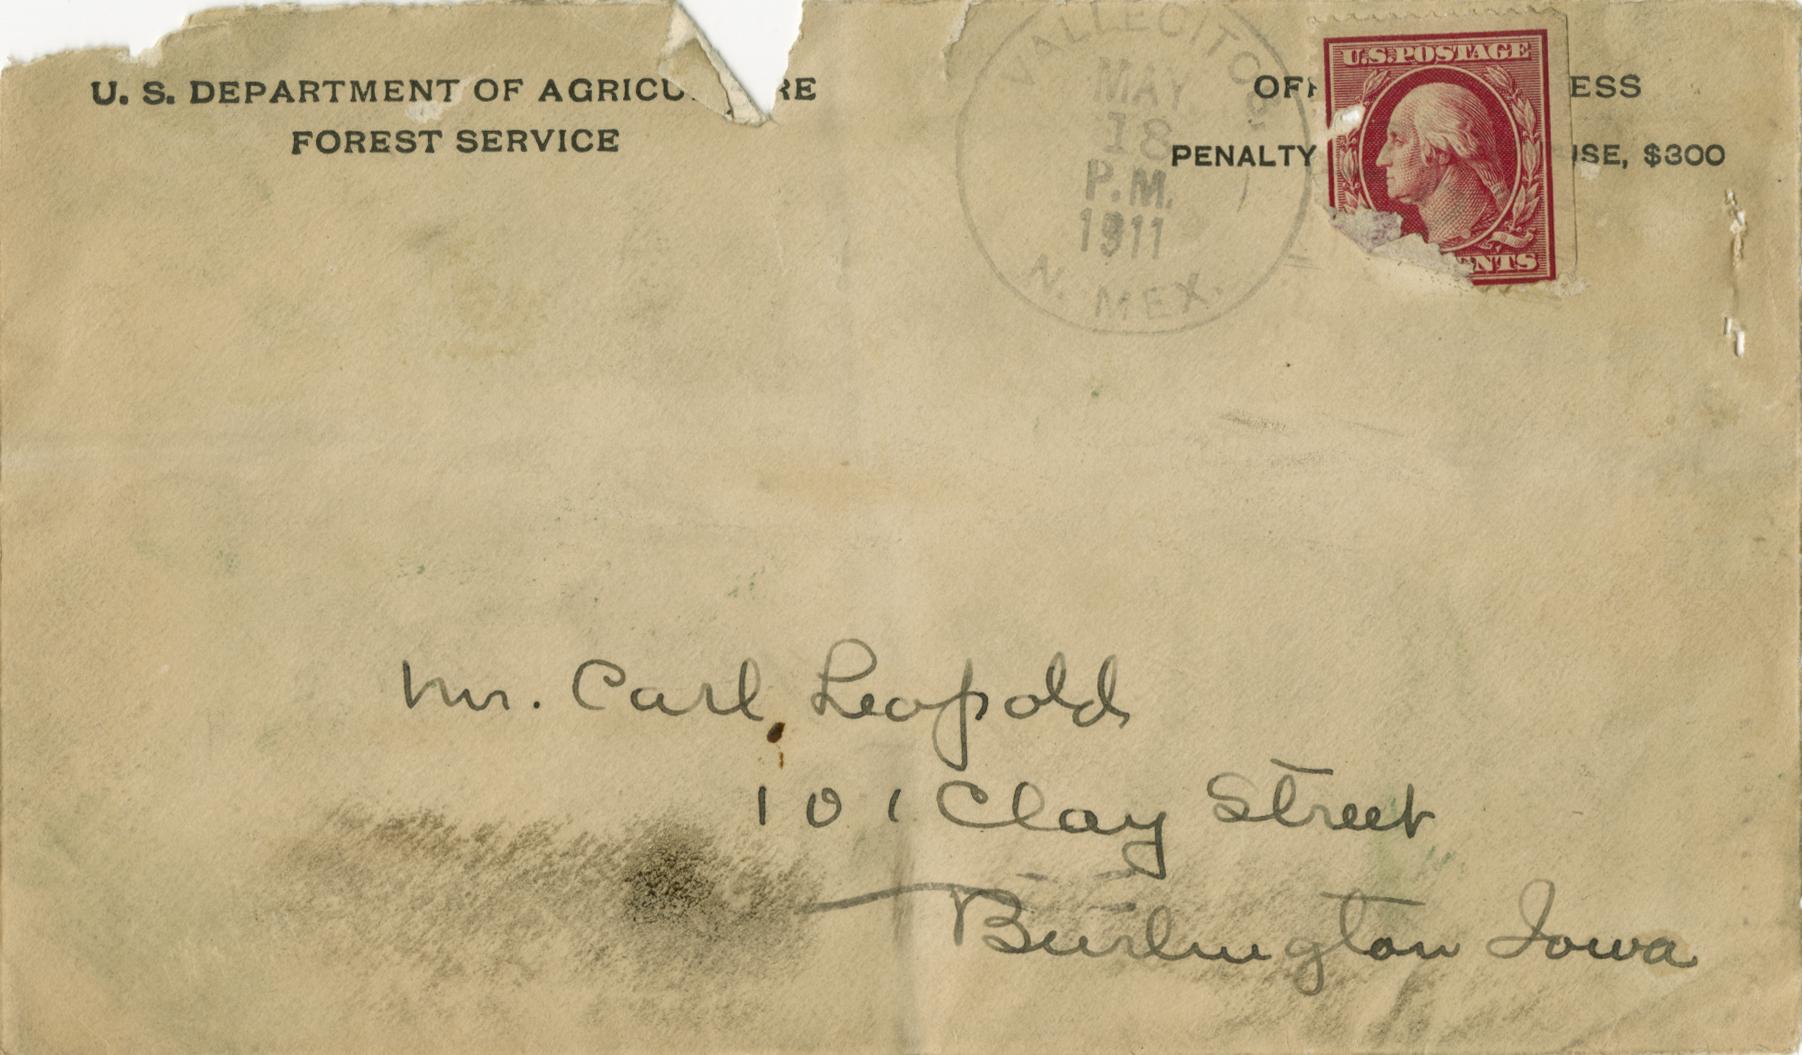 U. S. DEPARTMENT OF AGRICU RE
FOREST SERVICE
VALLECITOS
MAY
18
P.M.
1911
N. MEX.
U.S. POSTAGE
ENTS
OF ESS
PENALTY USE, $300
Mr. Carl Leopold
101 Clay Street
Burlington Iowa